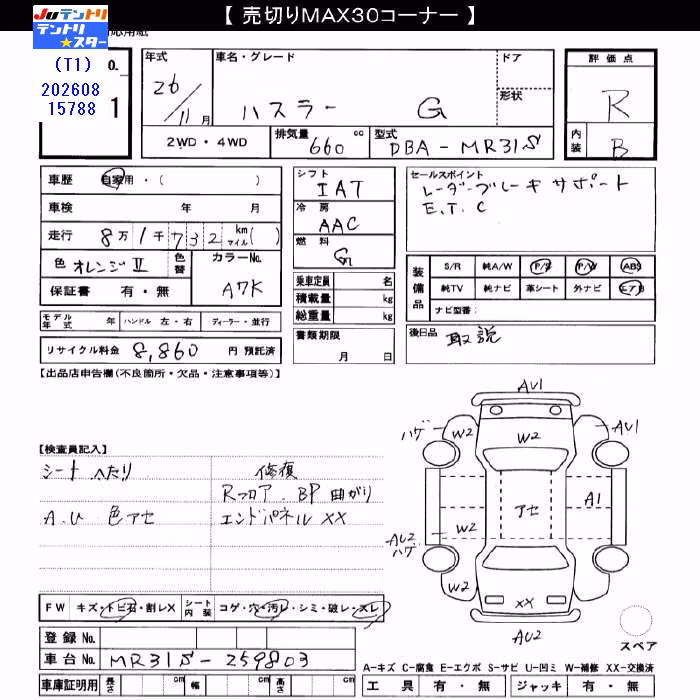 【 売切りMAX30コーナー 】
JUテントリ
テントリ★スター
応用紙
(T1)
202608
15788
o.
1
年式
26/11月
車名・グレード
ハスラー G
ドア
形状
評価点
R
内装
B
2WD・4WD
排気量 660 cc
型式 DBA-MR31S
車歴 自家用・( )
車検 年 月
走行 8万1千732 km マイル( )
色 オレンジII 色替
カラーNo. A7K
保証書 有・無
モデル年式 年 ハンドル 左・右 ディーラー・並行
リサイクル料金 8,860 円 預託済
シフト
IAT
冷房
AAC
燃料
G
乗車定員 名
積載量 kg
総重量 kg
書類期限
月 日
セールスポイント
レーダーブレーキサポート
E.T.C
装備品
S/R 純A/W P/S P/W ABS
純TV 純ナビ 革シート 外ナビ エアB
ナビ型番:
後日品 取説
【出品店申告欄(不良箇所・欠品・注意事項等)】
【検査員記入】
シート へたり
A.U 色アセ
修復
Rフロア.BP曲がり
エンドパネルXX
AU1
ハゲ
W2
W2
W2
AU1
アセ
A1
W2
AU2
ハゲ
W2
XX
AU2
スペア
FW キズ・トビ石・割レX シート内装 コゲ・穴・汚レ・シミ・破レ・スレ
登録No.
車台No. MR31S-259803
車庫証明用 長さ cm 幅 cm 高さ cm
A-キズ C-腐食 E-エクボ S-サビ U-凹ミ W-補修 XX-交換済
工具 有・無 ジャッキ 有・無